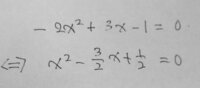 - 2x² + 3x - 1 = 0.
<=> x² - 3/2 x + 1/2 = 0